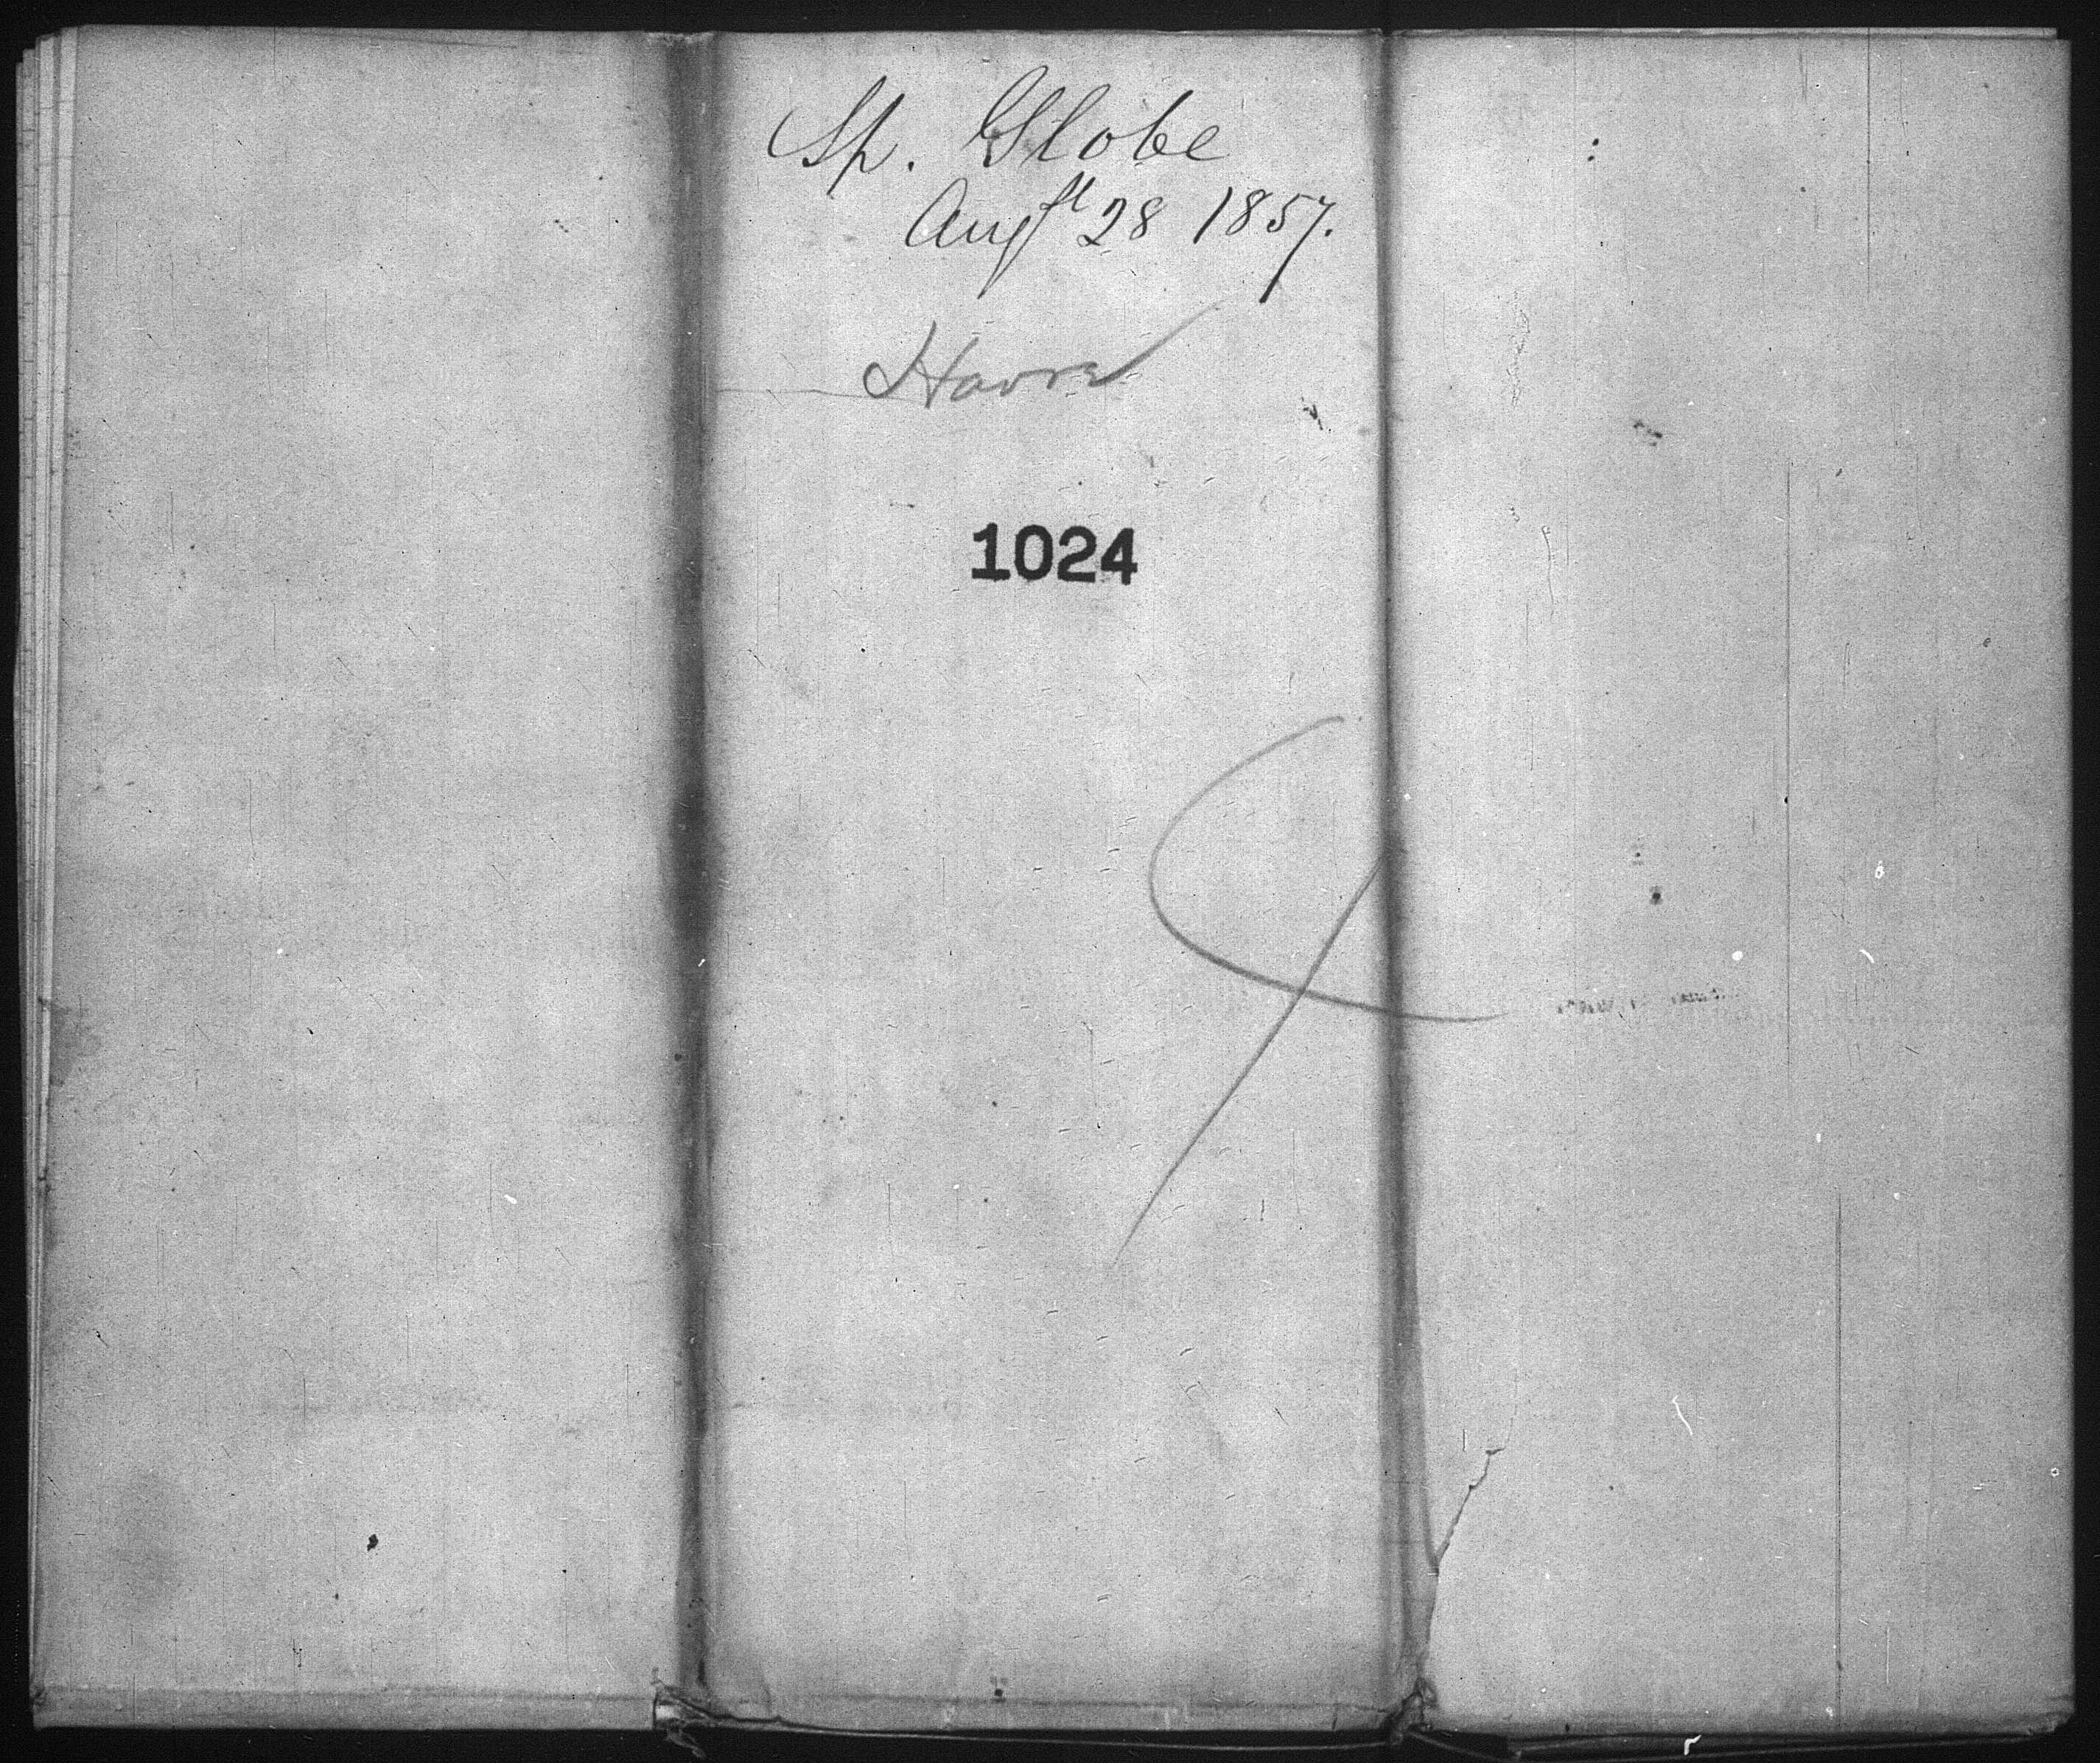 Sh. Globe
Augst 28 1857.
Havre
1024